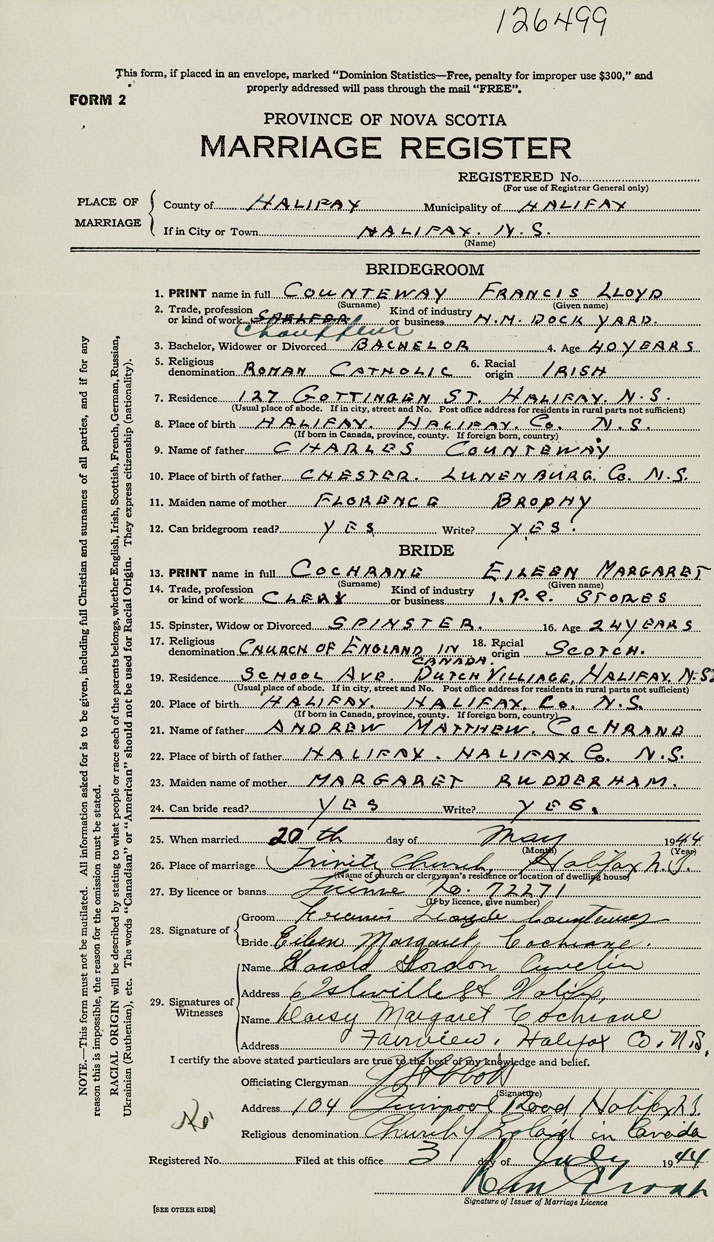 126499
This form, if placed in an envelope, marked "Dominion Statistics—Free, penalty for improper use $300," and
properly addressed will pass through the mail "FREE".
FORM 2
PROVINCE OF NOVA SCOTIA
MARRIAGE REGISTER
REGISTERED No.
(For use of Registrar General only)
PLACE OF MARRIAGE
County of HALIFAX Municipality of HALIFAX
If in City or Town HALIFAX. N.S.
(Name)
BRIDEGROOM
1. PRINT name in full COUNTEWAY FRANCIS LLOYD
(Surname) (Given name)
2. Trade, profession or kind of work Chauffeur Kind of industry or business H.M. DOCK YARD.
3. Bachelor, Widower or Divorced BACHELOR 4. Age 40 YEARS
5. Religious denomination ROMAN CATHOLIC 6. Racial origin IRISH
7. Residence 127 GOTTINGEN ST. HALIFAX. N.S.
(Usual place of abode. If in city, street and No. Post office address for residents in rural parts not sufficient)
8. Place of birth HALIFAX. HALIFAX. Co. N.S.
(If born in Canada, province, county. If foreign born, country)
9. Name of father CHARLES COUNTEWAY
10. Place of birth of father CHESTER. LUNENBURG. Co. N.S.
11. Maiden name of mother FLORENCE BROPHY
12. Can bridegroom read? YES Write? YES.
BRIDE
13. PRINT name in full COCHRANE EILEEN MARGARET
(Surname) (Given name)
14. Trade, profession or kind of work CLERK Kind of industry or business STORES
15. Spinster, Widow or Divorced SPINSTER. 16. Age 24 YEARS
17. Religious denomination CHURCH OF ENGLAND IN CANADA. 18. Racial origin SCOTCH.
19. Residence SCHOOL AVE. DUTCH VILLIAGE, HALIFAX. N.S.
(Usual place of abode. If in city, street and No. Post office address for residents in rural parts not sufficient)
20. Place of birth HALIFAX. HALIFAX. Co. N.S.
(If born in Canada, province, county. If foreign born, country)
21. Name of father ANDREW MATTHEW. COCHRANE
22. Place of birth of father HALIFAX. HALIFAX Co. N.S.
23. Maiden name of mother MARGARET RUDDERHAM.
24. Can bride read? YES Write? YES.
25. When married 20th day of May 1944
(Month) (Year)
26. Place of marriage Trinity Church, Halifax N.S.
(Name of church or clergyman's residence or location of dwelling house)
27. By licence or banns License No. 72271
(If by licence, give number)
28. Signature of
Groom Francis Lloyde Counteway
Bride Eileen Margaret Cochrane.
29. Signatures of Witnesses
Name Harold Gordon
Address 6 St Halifax,
Name Daisy Margaret Cochrane
Address Fairview, Halifax Co. N.S.
I certify the above stated particulars are true to the best of my knowledge and belief.
Officiating Clergyman
(Signature)
Address 104 Liverpool Road Halifax N.S.
Religious denomination Church of England in Canada
Registered No. Filed at this office 3 day of July 1944
Signature of Issuer of Marriage Licence
[SEE OTHER SIDE]
NOTE.—This form must not be mutilated. All information asked for is to be given, including full Christian and surnames of all parties, and if for any
reason this is impossible, the reason for the omission must be stated.
RACIAL ORIGIN will be described by stating to what people or race each of the parents belongs, whether English, Irish, Scottish, French, German, Russian,
Ukrainian (Ruthenian), etc. The words "Canadian" or "American" should not be used for Racial Origin. They express citizenship (nationality).